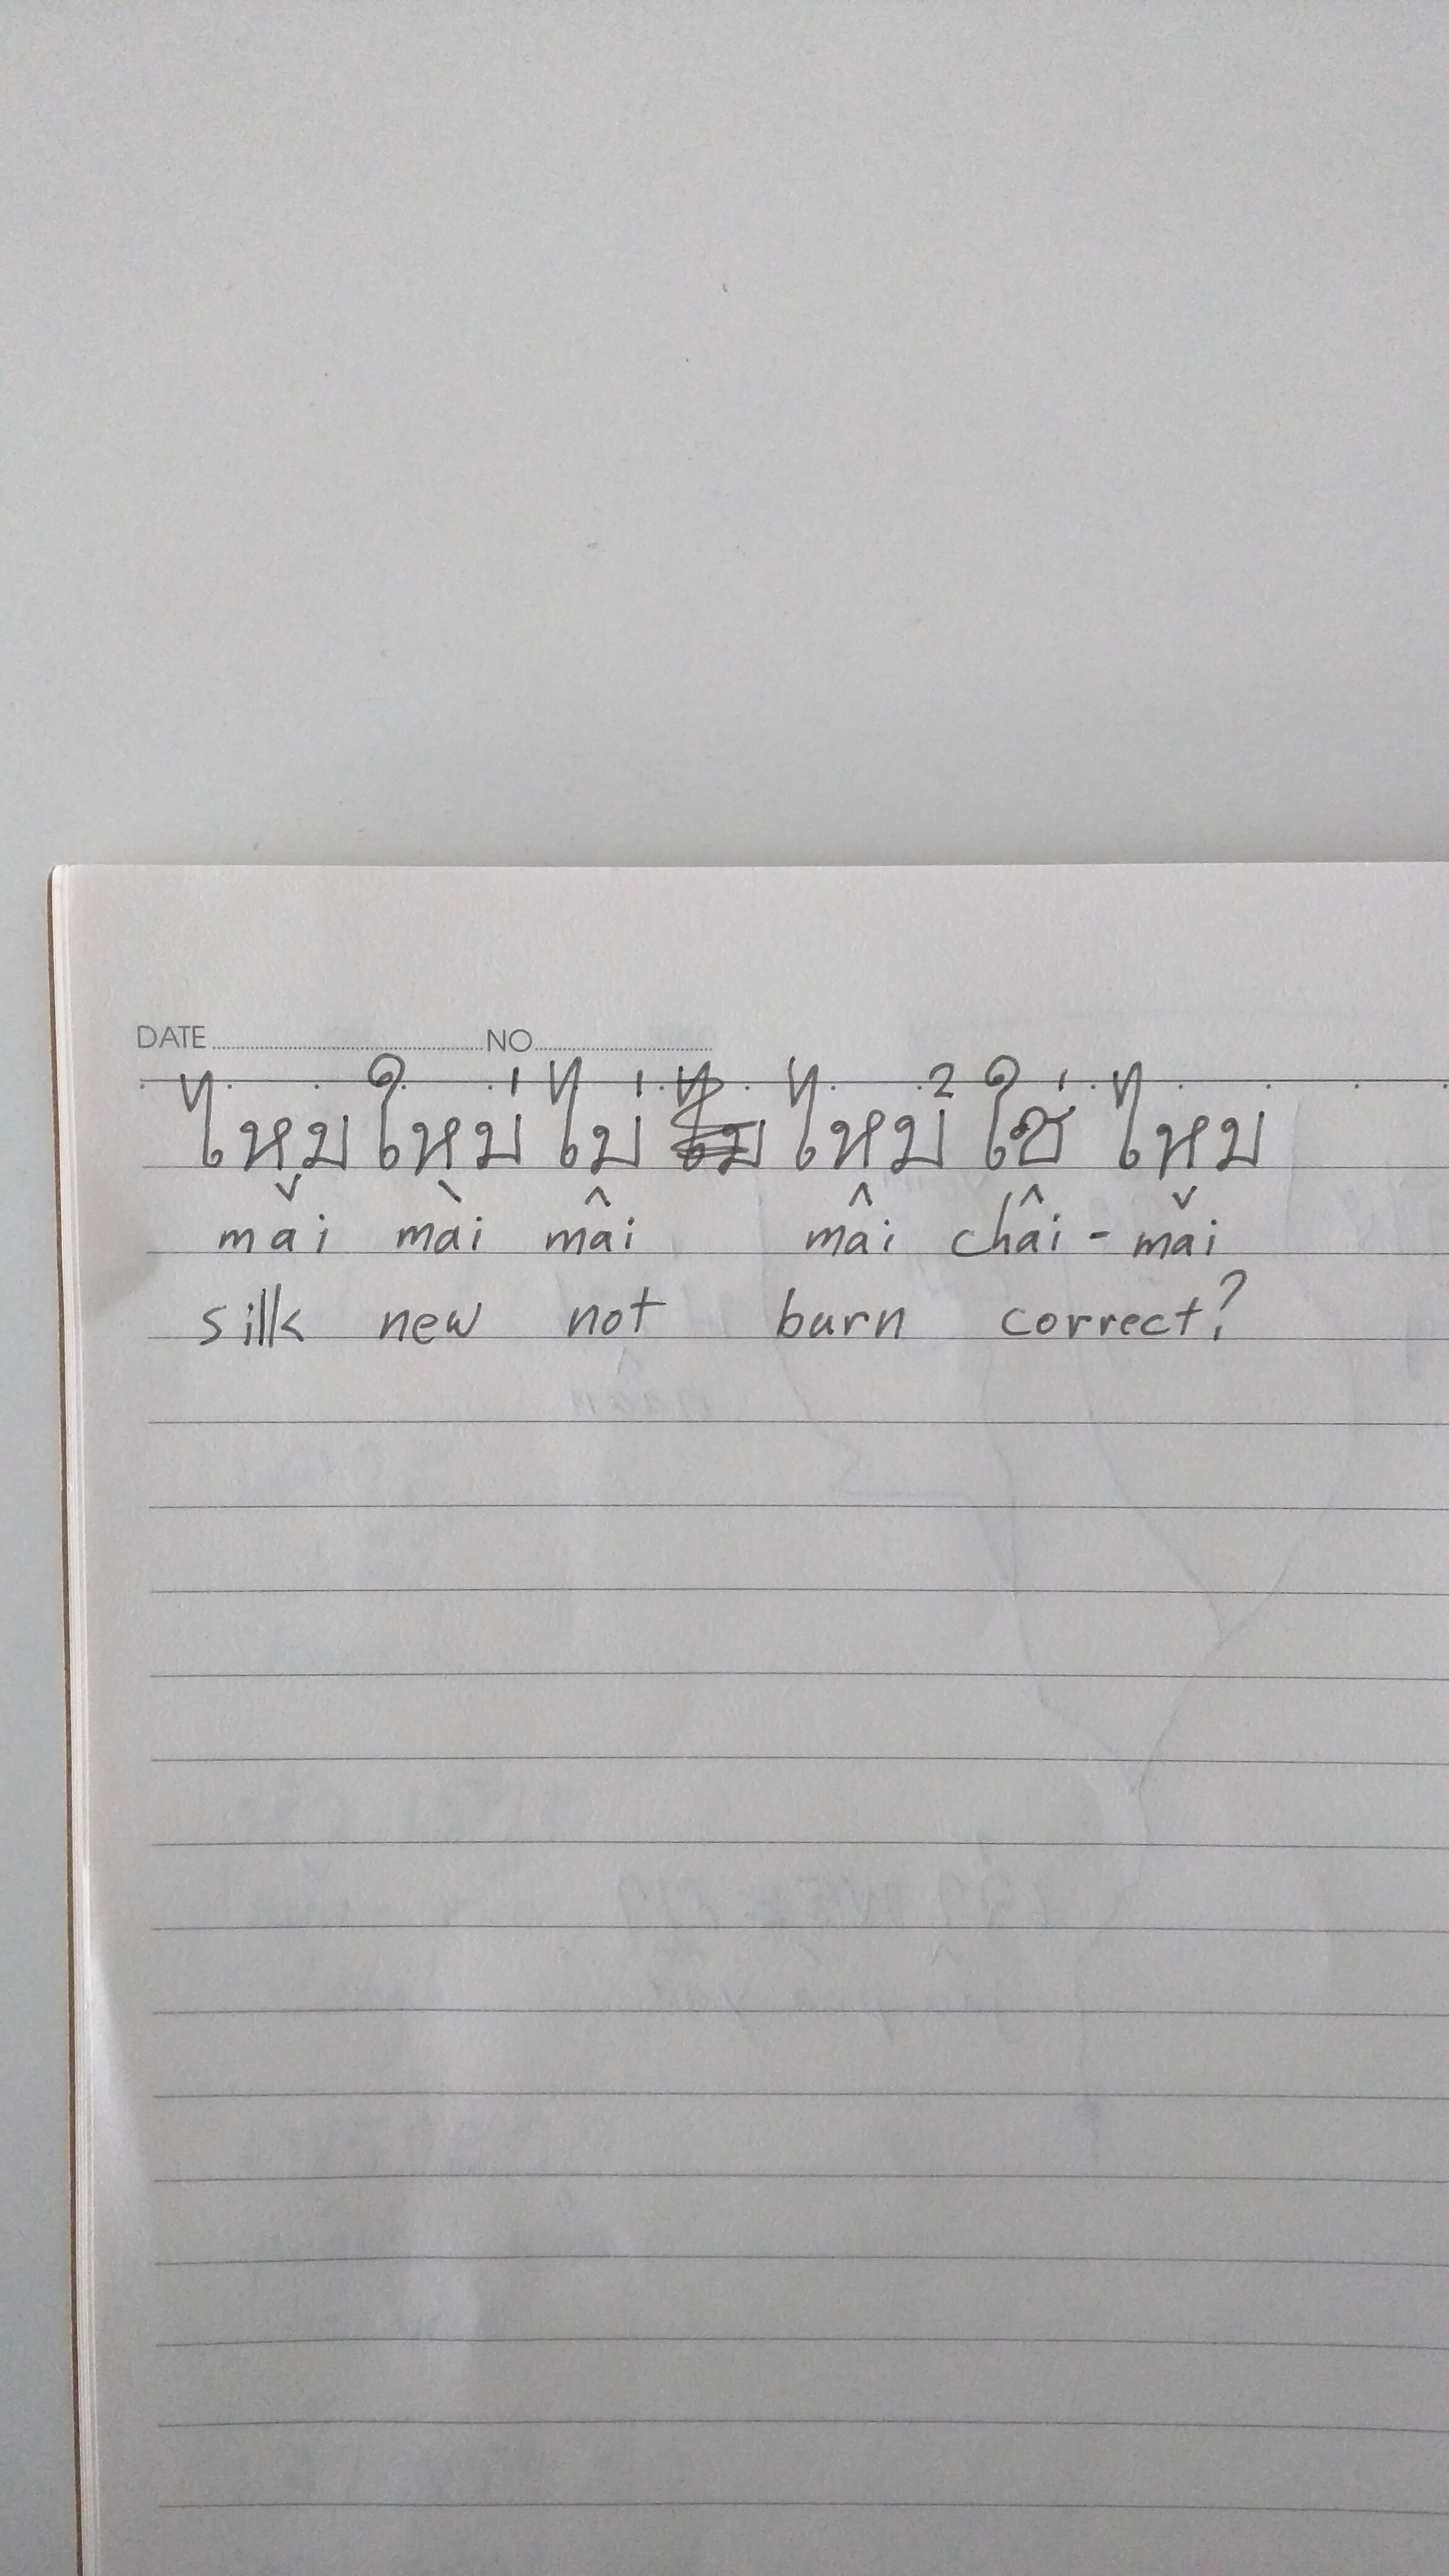 DATE NO
ไหมใหม่ไม่ ไหม้ ใช่ ไหม
mǎi mài mâi mâi châi - mǎi
silk new not burn correct?